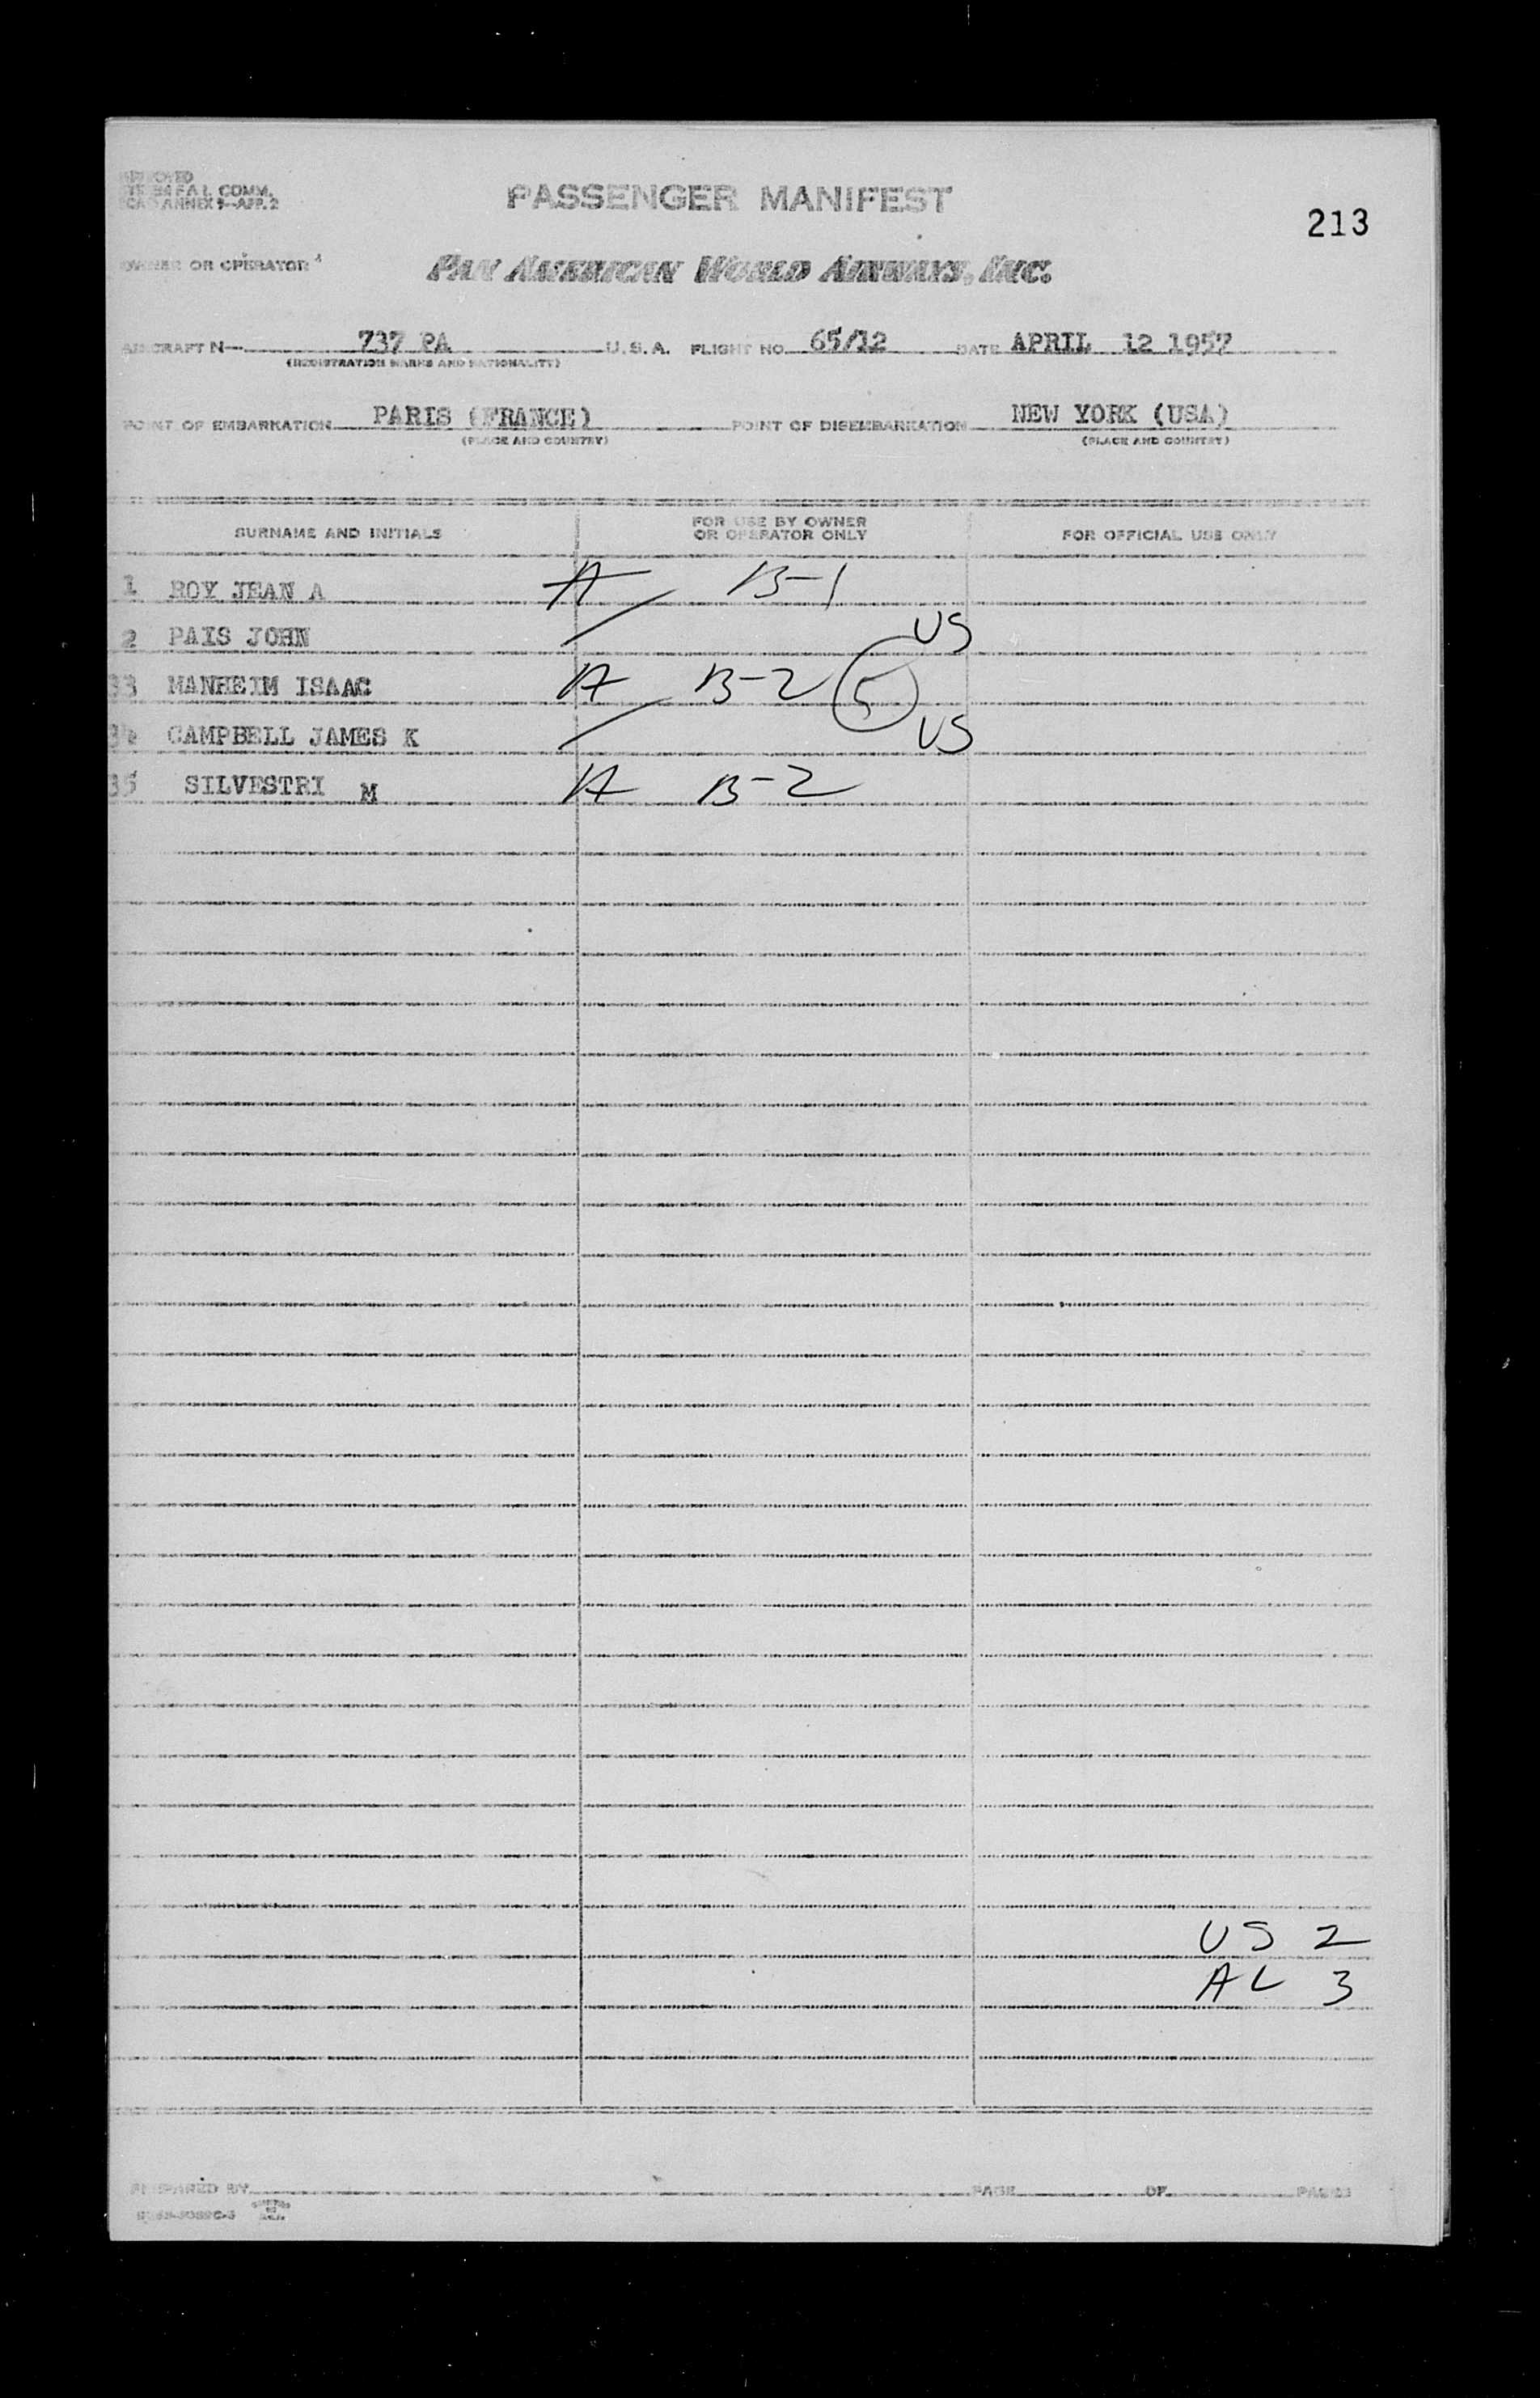 PASSENGER MANIFEST
F A L COMM.
ANNEX 9-APP. 2
213
OWNER OR OPERATOR
PAN AMERICAN WORLD AIRWAYS, INC.
AIRCRAFT N— 737 PA U. S. A. FLIGHT NO. 65/12 DATE APRIL 12 1957
(REGISTRATION MARKS AND NATIONALITY)
POINT OF EMBARKATION PARIS (FRANCE) POINT OF DISEMBARKATION NEW YORK (USA)
(PLACE AND COUNTRY) (PLACE AND COUNTRY)
SURNAME AND INITIALS
FOR USE BY OWNER
OR OPERATOR ONLY
FOR OFFICIAL USE ONLY
1 ROY JEAN A A B-1
2 PAIS JOHN / US
33 MANHEIM ISAAC A B-2 5
34 CAMPBELL JAMES K / US
35 SILVESTRI M A B-2
US 2
AL 3
PREPARED BY PAGE OF PAGES